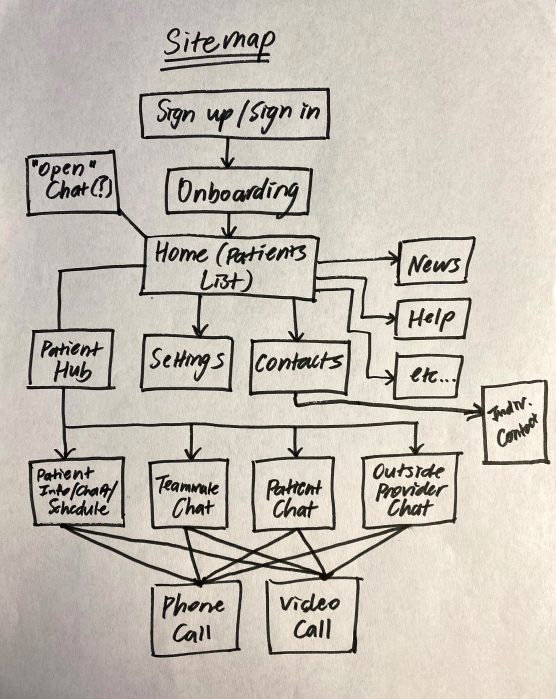 Sitemap
Sign up/Sign in
"Open"
Chat(?)
Onboarding
Home (Patients
List)
News
Help
etc...
Patient
Hub
Settings
Contacts
Indiv.
Contact
Patient
Info/Chart/
Schedule
Teammate
Chat
Patient
Chat
Outside
Provider
Chat
Phone
Call
Video
Call